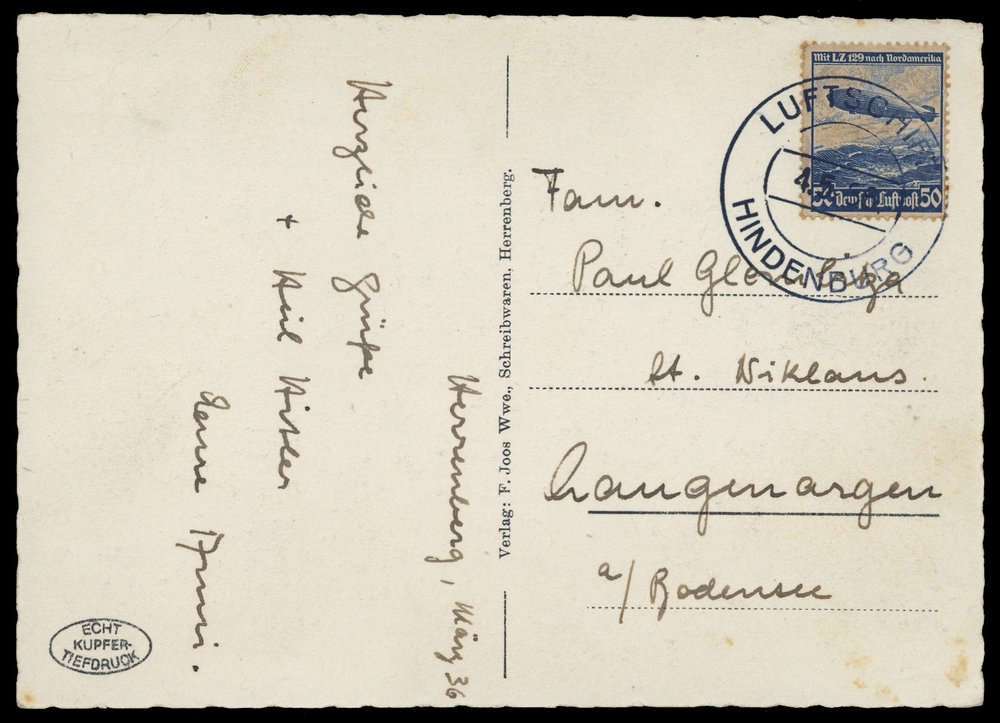 Herrenberg, März 36
Herzliche Grüße
+ Heil Hitler
Verlag: F. Joos Wwe., Schreibwaren, Herrenberg.
ECHT
KUPFER-
TIEFDRUCK
Mit LZ 129 nach Nordamerika
50 Deutsche Luftpost 50
LUFTSCHIFF
4.5.
HINDENBURG
Fam.
Paul
St. Niklaus.
Langenargen
a/ Bodensee